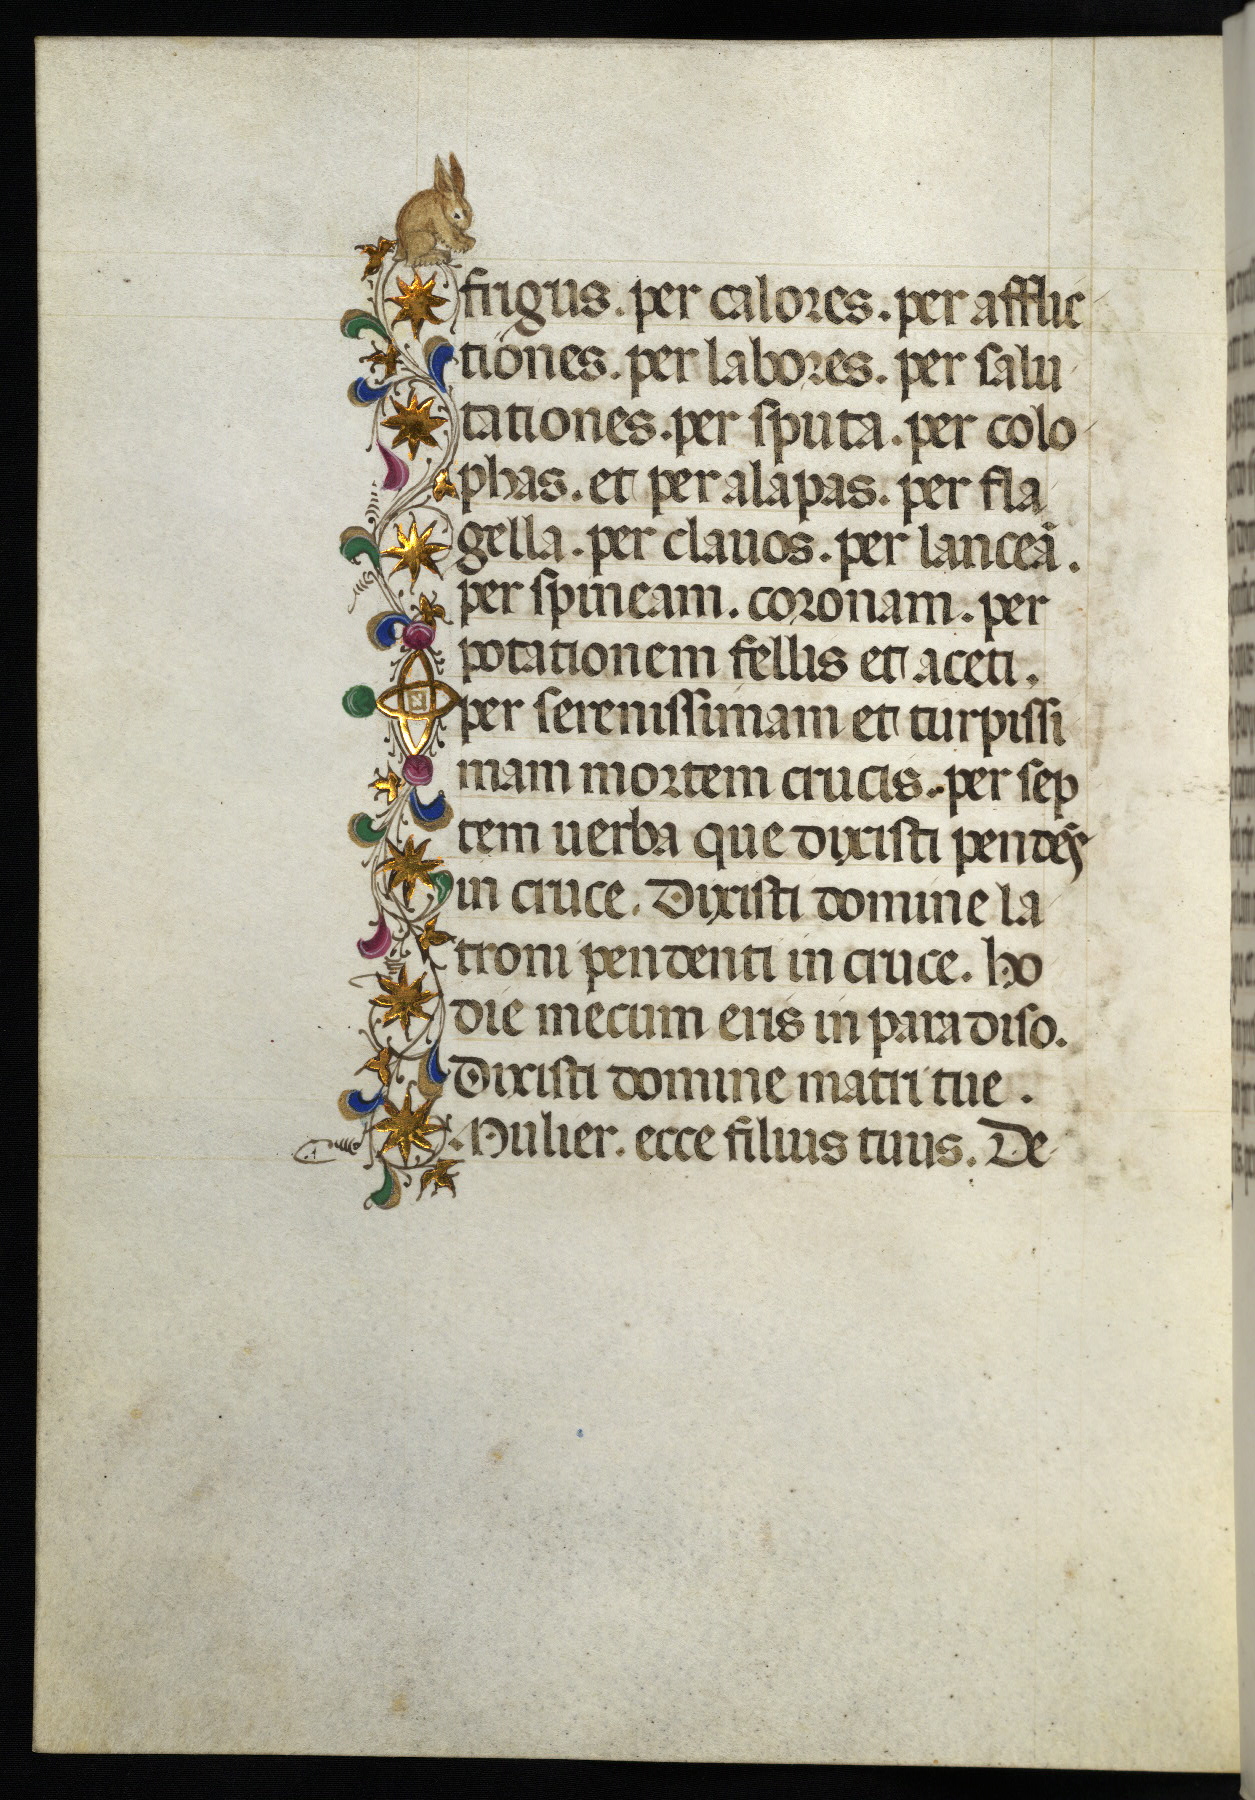 frigus. per calores. per afflic
tiones. per labores. per salu
tationes. per sputa. per colo
phas. et per alapas. per fla
gella. per clauos. per lanceā.
per spineam. coronam. per
potationem fellis et aceti.
per serenissimam et turpissi
mam mortem crucis. per sep
tem uerba que dixisti pendēs
in cruce. Dixisti domine la
troni pendenti in cruce. ho
die mecum eris in paradiso.
Dixisti domine matri tue.
Mulier. ecce filius tuus. De